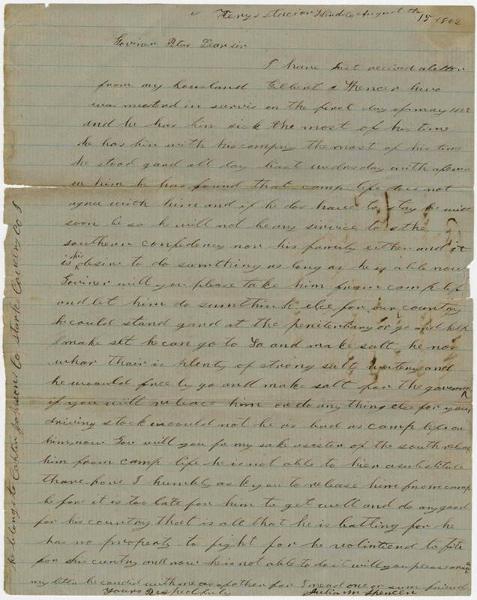 Terrys station Hinds Co August the 15 1862
Govinor Petus Dear sir
I have just received a letter
from my housband Gilbert Spencer hive
was musterd in servis on the first day of may 1862
and he has bin sick the most of his time
he has bin with his compny the most of his time
he stood gard all day last wednsday with a fever
on him he has found that camp life does not
agree with him and if he dos have to stay he will
soon be so he will not be any service to the
southern confidency nor his family either and it
is his desire to do somthing as long as he is able now
Govinor will you please take him from camp life
and let him do sumthink else for our country
he could stand gard at the penitenhary or go and help
make salt he can go to La and make salt he nos
whar thair is plenty of strong salt watery and
he would freely go and make salt for the governor
if you will releace him or do any thing else for you
driving stock would not be as bad as camp life on
him now Gov will you for my sake a sister of the south release
him from camp life he is not able to hier a substitute
tharefore I humbly ask you to release him from camp
be for it is too late for him to get well and do any good
for his country that is all that he is batling for he
has no property to fight for he volintierd to fite
for his cuntry and now he is not able to do it will you please answer
my letter be candid with me as a father for I need one or sum friend
Yours Respectfuly Julia M Spencer
he belongs to Captin Johnsons Co starks Cavalry Co B